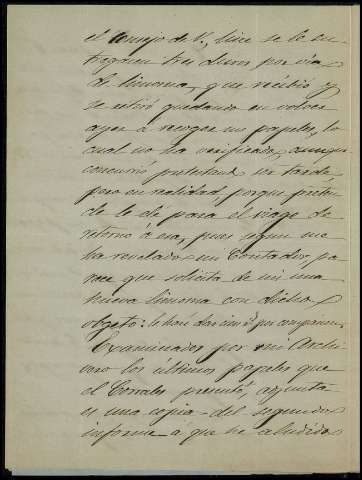 el consejo de V., hice se le en-
tregaran tres duros por via
de limosna, que recibió y
se retiró quedando en volver
ayer á recoger sus papeles, lo
cual no ha verificado, aunque
concurrió pretestand ser tarde,
pero en realidad, porque preten-
de le dé para el viage de
retorno á esa, pues segun me
ha revelado un Contador, pa-
rece que solicita de mi una
nueva limosna con dicho
objeto: le haré dar cinco por compasion.
Examinados por mi Archi-
vero los últimos papeles que
el Corrales presentó, adjunta
es una copia del segundo
informe á que he aludido